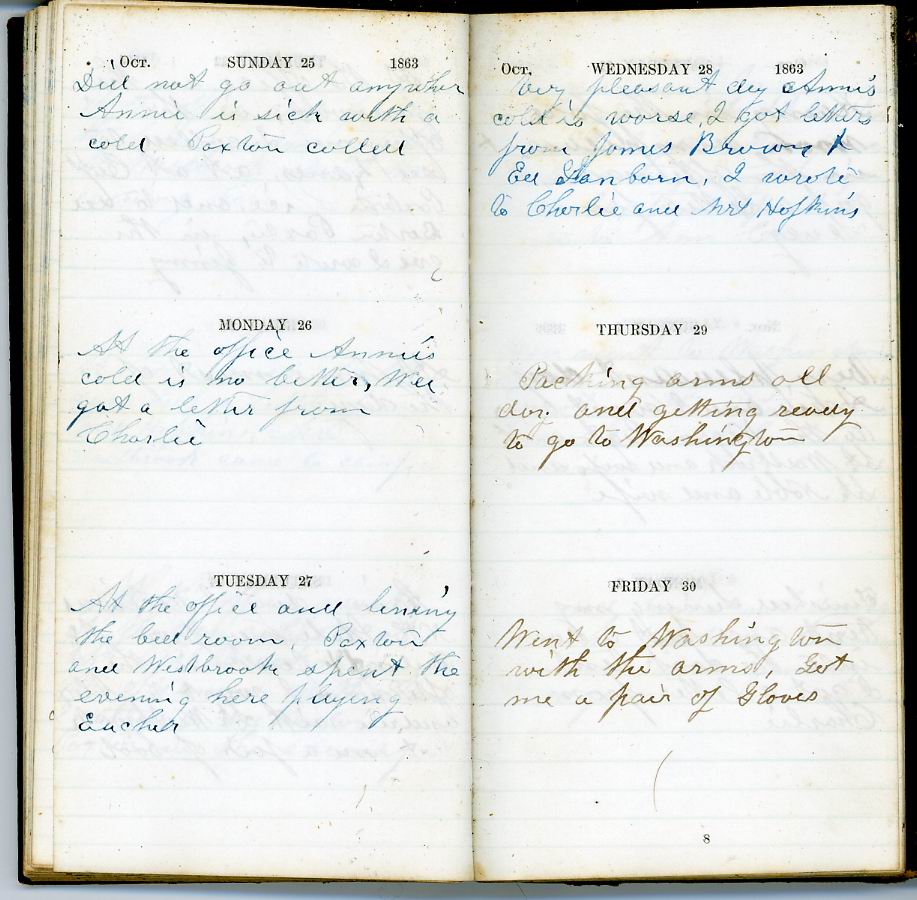 Oct. SUNDAY 25 1863
Did not go out anywher
Annie is sick with a
cold. Paxton called
MONDAY 26
At the office Annie's
cold is no better, Wee
got a letter from
Charlie
TUESDAY 27
At the office and lining
the bed room. Paxton
and Westbrook spent the
evening here playing
Eucher
Oct, WEDNESDAY 28 1863
Very pleasant day Annie's
cold is worse, I got letters
from James Brown &
Ed Sanborn, I wrote
to Charlie and Mrs Hofkins
THURSDAY 29
Packing arms all
day. and getting ready
to go to Washington
FRIDAY 30
Went to Washington
with the arms, Got
me a pair of Gloves
8